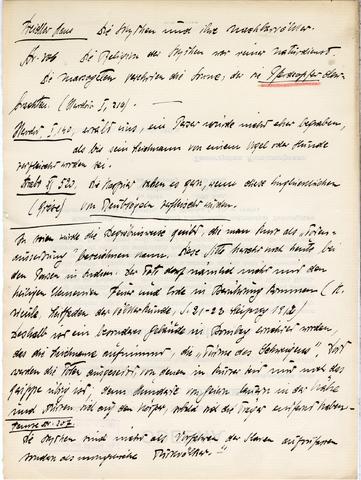 Treidler Hans Die Skythen und ihre Nachbarvölker.
Die Religion der Skythen war reiner Naturdienst
Die Massageten verehrten die Sonne, der sie Pferdeopfer dar-
brachten. (Herodot I, 216).
Herodot I, 140, erzählt uns, ein Perser würde nicht eher begraben,
als bis sein Leichnam von einem Vogel oder Hunde
worden sei.
Strabo 520. Die Kaspier sahen es gern, wenn diese
(Greise) von Raubvögeln zerfleischt würden.
In wird die Begräbnisweise geübt, die man kurz als
aussetzung bezeichnen kann. Diese Sitte herrscht noch heute bei
den Parsen in Indien. Der Tote darf nämlich nicht mit den
heiligen Elementen Feuer und Erde in Berührung kommen (K.
Weule, Leitfaden der Völkerkunde, S. 21-23 Leipzig 1912)
Deshalb ist ein besonderes Gebäude in Bombay errichtet worden,
das die Leichname aufnimmt, die „Türme des Schweigens", Dort
werden die Toten ausgesetzt, von denen in kurzer Zeit nur noch das
Gerippe übrig ist, denn Hunderte von Geiern in der Nähe
und stürzen sich auf den Körper, sobald sich die Träger entfernt haben.
Die Skythen sind nicht als Vorfahren der Slaven aufzufassen
sondern als mongolische